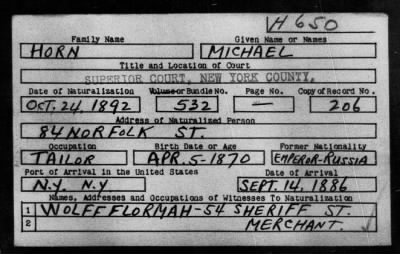 H 650
Family Name Given Name or Names
HORN MICHAEL
Title and Location of Court
SUPERIOR COURT, NEW YORK COUNTY.
Date of Naturalization Volume or Bundle No. Page No. Copy of Record No.
OCT. 24, 1892 532 — 206
Address of Naturalized Person
84 NORFOLK ST.
Occupation Birth Date or Age Former Nationality
TAILOR APR. 5-1870 EMPEROR-RUSSIA
Port of Arrival in the United States Date of Arrival
N.Y. N.Y SEPT. 14, 1886
Names, Addresses and Occupations of Witnesses To Naturalization
1 WOLFF FLORMAH-54 SHERIFF ST.
2 MERCHANT.